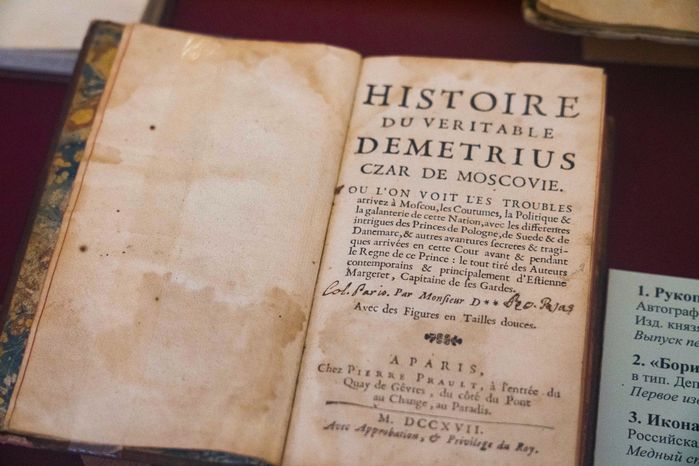 HISTOIRE
DU VERITABLE
DEMETRIUS
CZAR DE MOSCOVIE.
OU L'ON VOIT LES TROUBLES
arrivez à Moscou, les Coutumes, la Politique &
la galanterie de cette Nation, avec les differentes
intrigues des Princes de Pologne, de Suede & de
Danemarc, & autres avantures secretes & tragi-
ques arrivées en cette Cour avant & pendant
le Regne de ce Prince : le tout tiré des Auteurs
contemporains & principalement d'Estienne
Margeret, Capitaine de ses Gardes.
Col. Paris. Par Monsieur D**
Avec des Figures en Tailles douces.
A PARIS,
Chez PIERRE PRAULT, à l'entrée du
Quay de Gêvres, du côté du Pont
au Change, au Paradis.
M. DCCXVII.
Avec Approbation, & Privilege du Roy.
1. Руко
Автограф
Изд. княз
Выпуск пе
2. «Бори
в тип. Деп
Первое из
3. Икона
Российская
Медный с